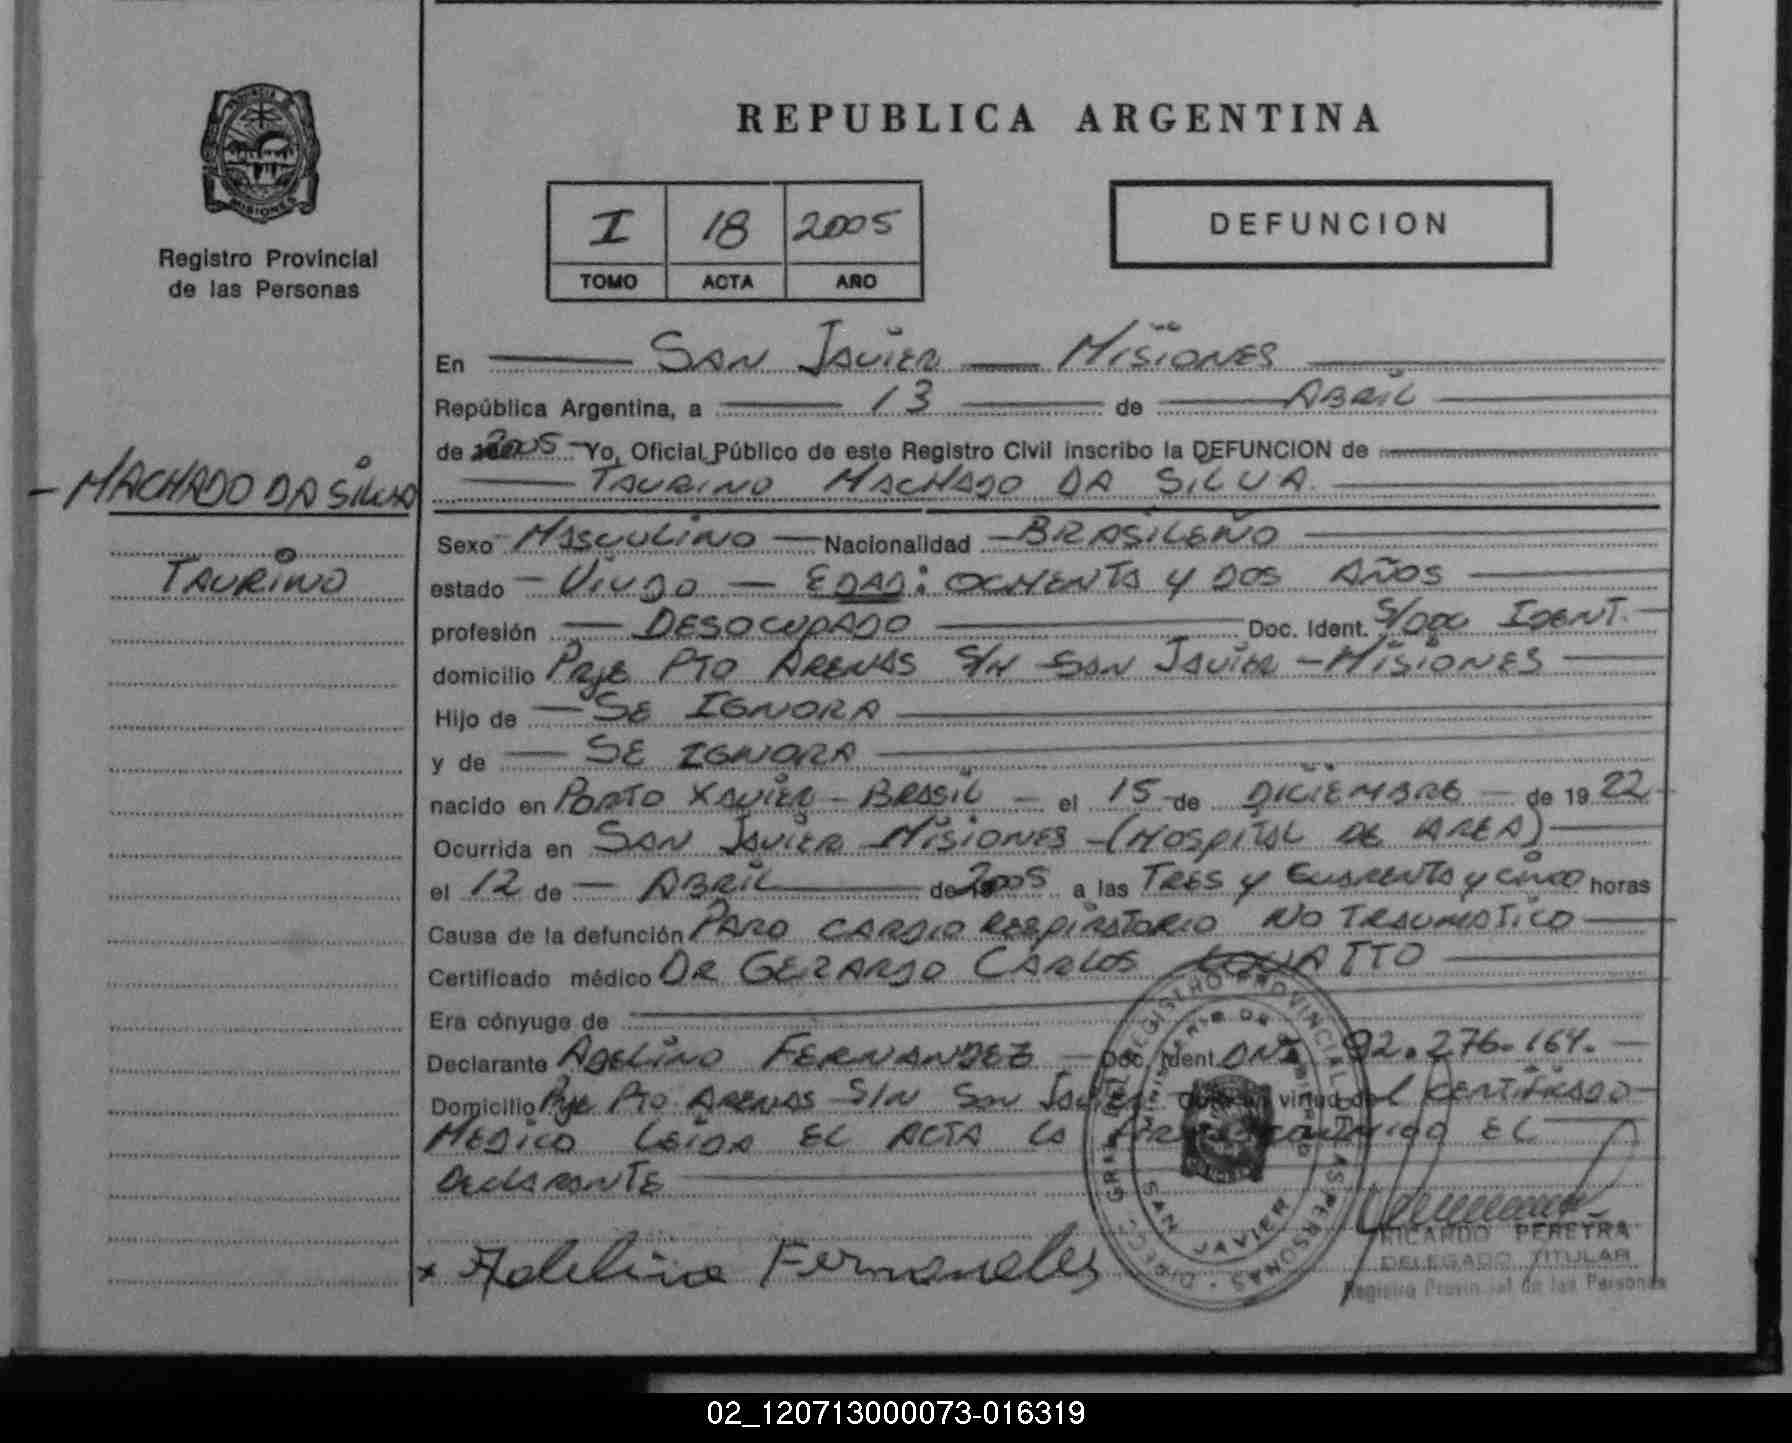 REPUBLICA ARGENTINA
PROVINCIA DE
MISIONES
Registro Provincial
de las Personas
I 18 2005
TOMO ACTA AÑO
DEFUNCION
En SAN JAVIER — MISIONES
República Argentina, a 13 de ABRIL
de 2005 Yo, Oficial Público de este Registro Civil inscribo la DEFUNCION de
TAURINO MACHADO DA SILVA
- MACHADO DA SILVA
TAURINO
Sexo MASCULINO Nacionalidad BRASILEÑO
estado - VIUDO - EDAD: OCHENTA Y DOS AÑOS
profesión DESOCUPADO Doc. Ident. S/DOC IDENT.
domicilio PRJE PTO ARENAS S/N SAN JAVIER - MISIONES
Hijo de - SE IGNORA
y de - SE IGNORA
nacido en PORTO XAVIER - BRASIL - el 15 de DICIEMBRE de 19 22
Ocurrida en SAN JAVIER MISIONES - (HOSPITAL DE AREA)
el 12 de ABRIL de 2005 a las TRES Y CUARENTA Y CINCO horas
Causa de la defunción PARO CARDIO RESPIRATORIO NO TRAUMATICO
Certificado médico DR GERARDO CARLOS
Era cónyuge de
Declarante ADELINO FERNANDEZ - Doc. Ident. DNI 92.276.164.
Domicilio PJE PTO ARENAS S/N SAN JAVIER virtud del CERTIFICADO
MEDICO LEIDA EL ACTA LA EL
DECLARANTE
x Adelino Fernandes
DIRECC. GRAL. REGISTRO PROVINCIAL DE LAS PERSONAS
MINISTERIO DE GOBIERNO
SAN JAVIER
RICARDO PEREYRA
DELEGADO TITULAR
Registro Provincial de las Personas
02_120713000073-016319